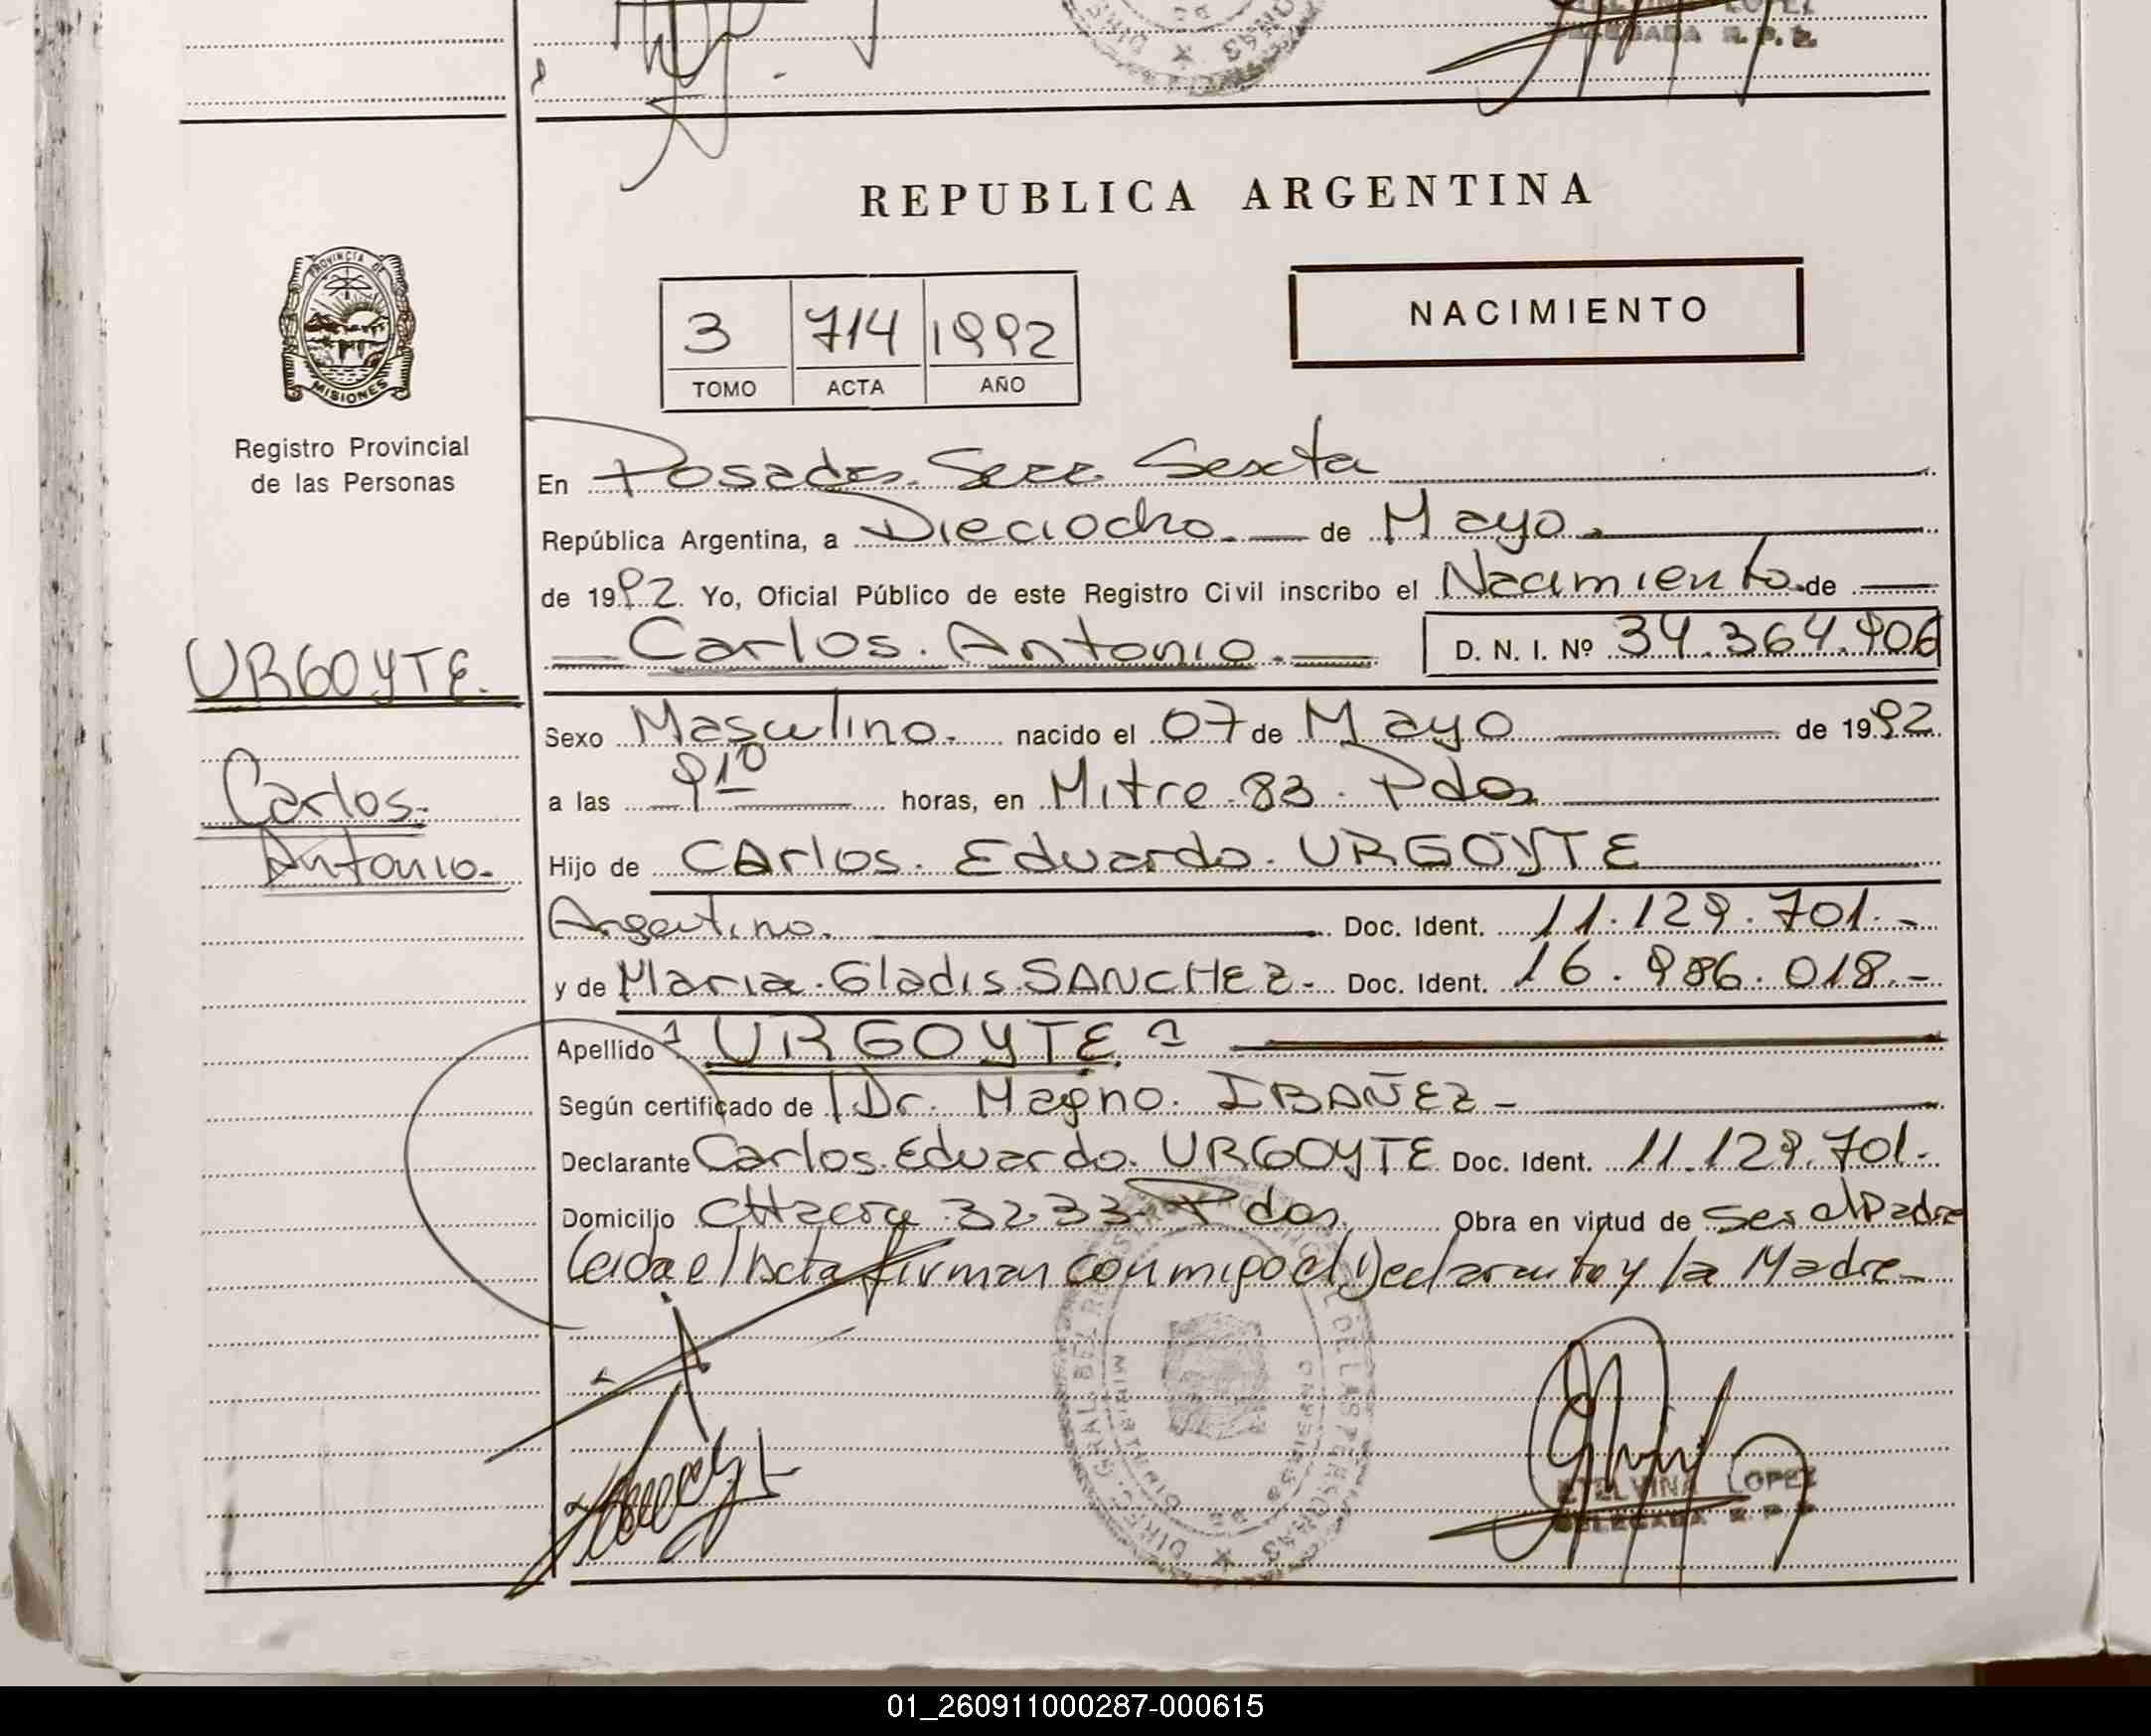 ETELVINA LOPEZ
DELEGADA R. P. P.
REPUBLICA ARGENTINA
PROVINCIA DE
MISIONES
Registro Provincial
de las Personas
3 714 1992
TOMO ACTA AÑO
NACIMIENTO
En Posadas Secc. Sexta
República Argentina, a Dieciocho.- de Mayo.
de 1992. Yo, Oficial Público de este Registro Civil inscribo el Nacimiento de
Carlos. Antonio. D. N. I. Nº 34.364.906
URGOYTE.
Carlos.
Antonio.
Sexo Masculino. nacido el 07 de Mayo de 1992
a las 9 10 horas, en Mitre 83. Pdas
Hijo de CArlos. Eduardo. URGOYTE
Argentino. Doc. Ident. 11.129.701.-
y de Maria. Gladis. SANCHEZ- Doc. Ident. 16.986.018.-
Apellido "URGOYTE"
Según certificado de Dr. Magno. IBAÑEZ-
Declarante Carlos. Eduardo. URGOYTE Doc. Ident. 11.129.701.
Domicilio 3233- Pdas. Obra en virtud de Ser el Padre
Leida el Acta firman conmigo el Declarante y la Madre-
ETELVINA LOPEZ
DELEGADA R. P. P.
01_260911000287-000615